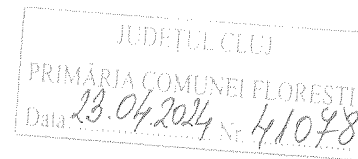 JUDEȚUL CLUJ
PRIMĂRIA COMUNEI FLOREȘTI
Data 23.04.2024 Nr. 41078